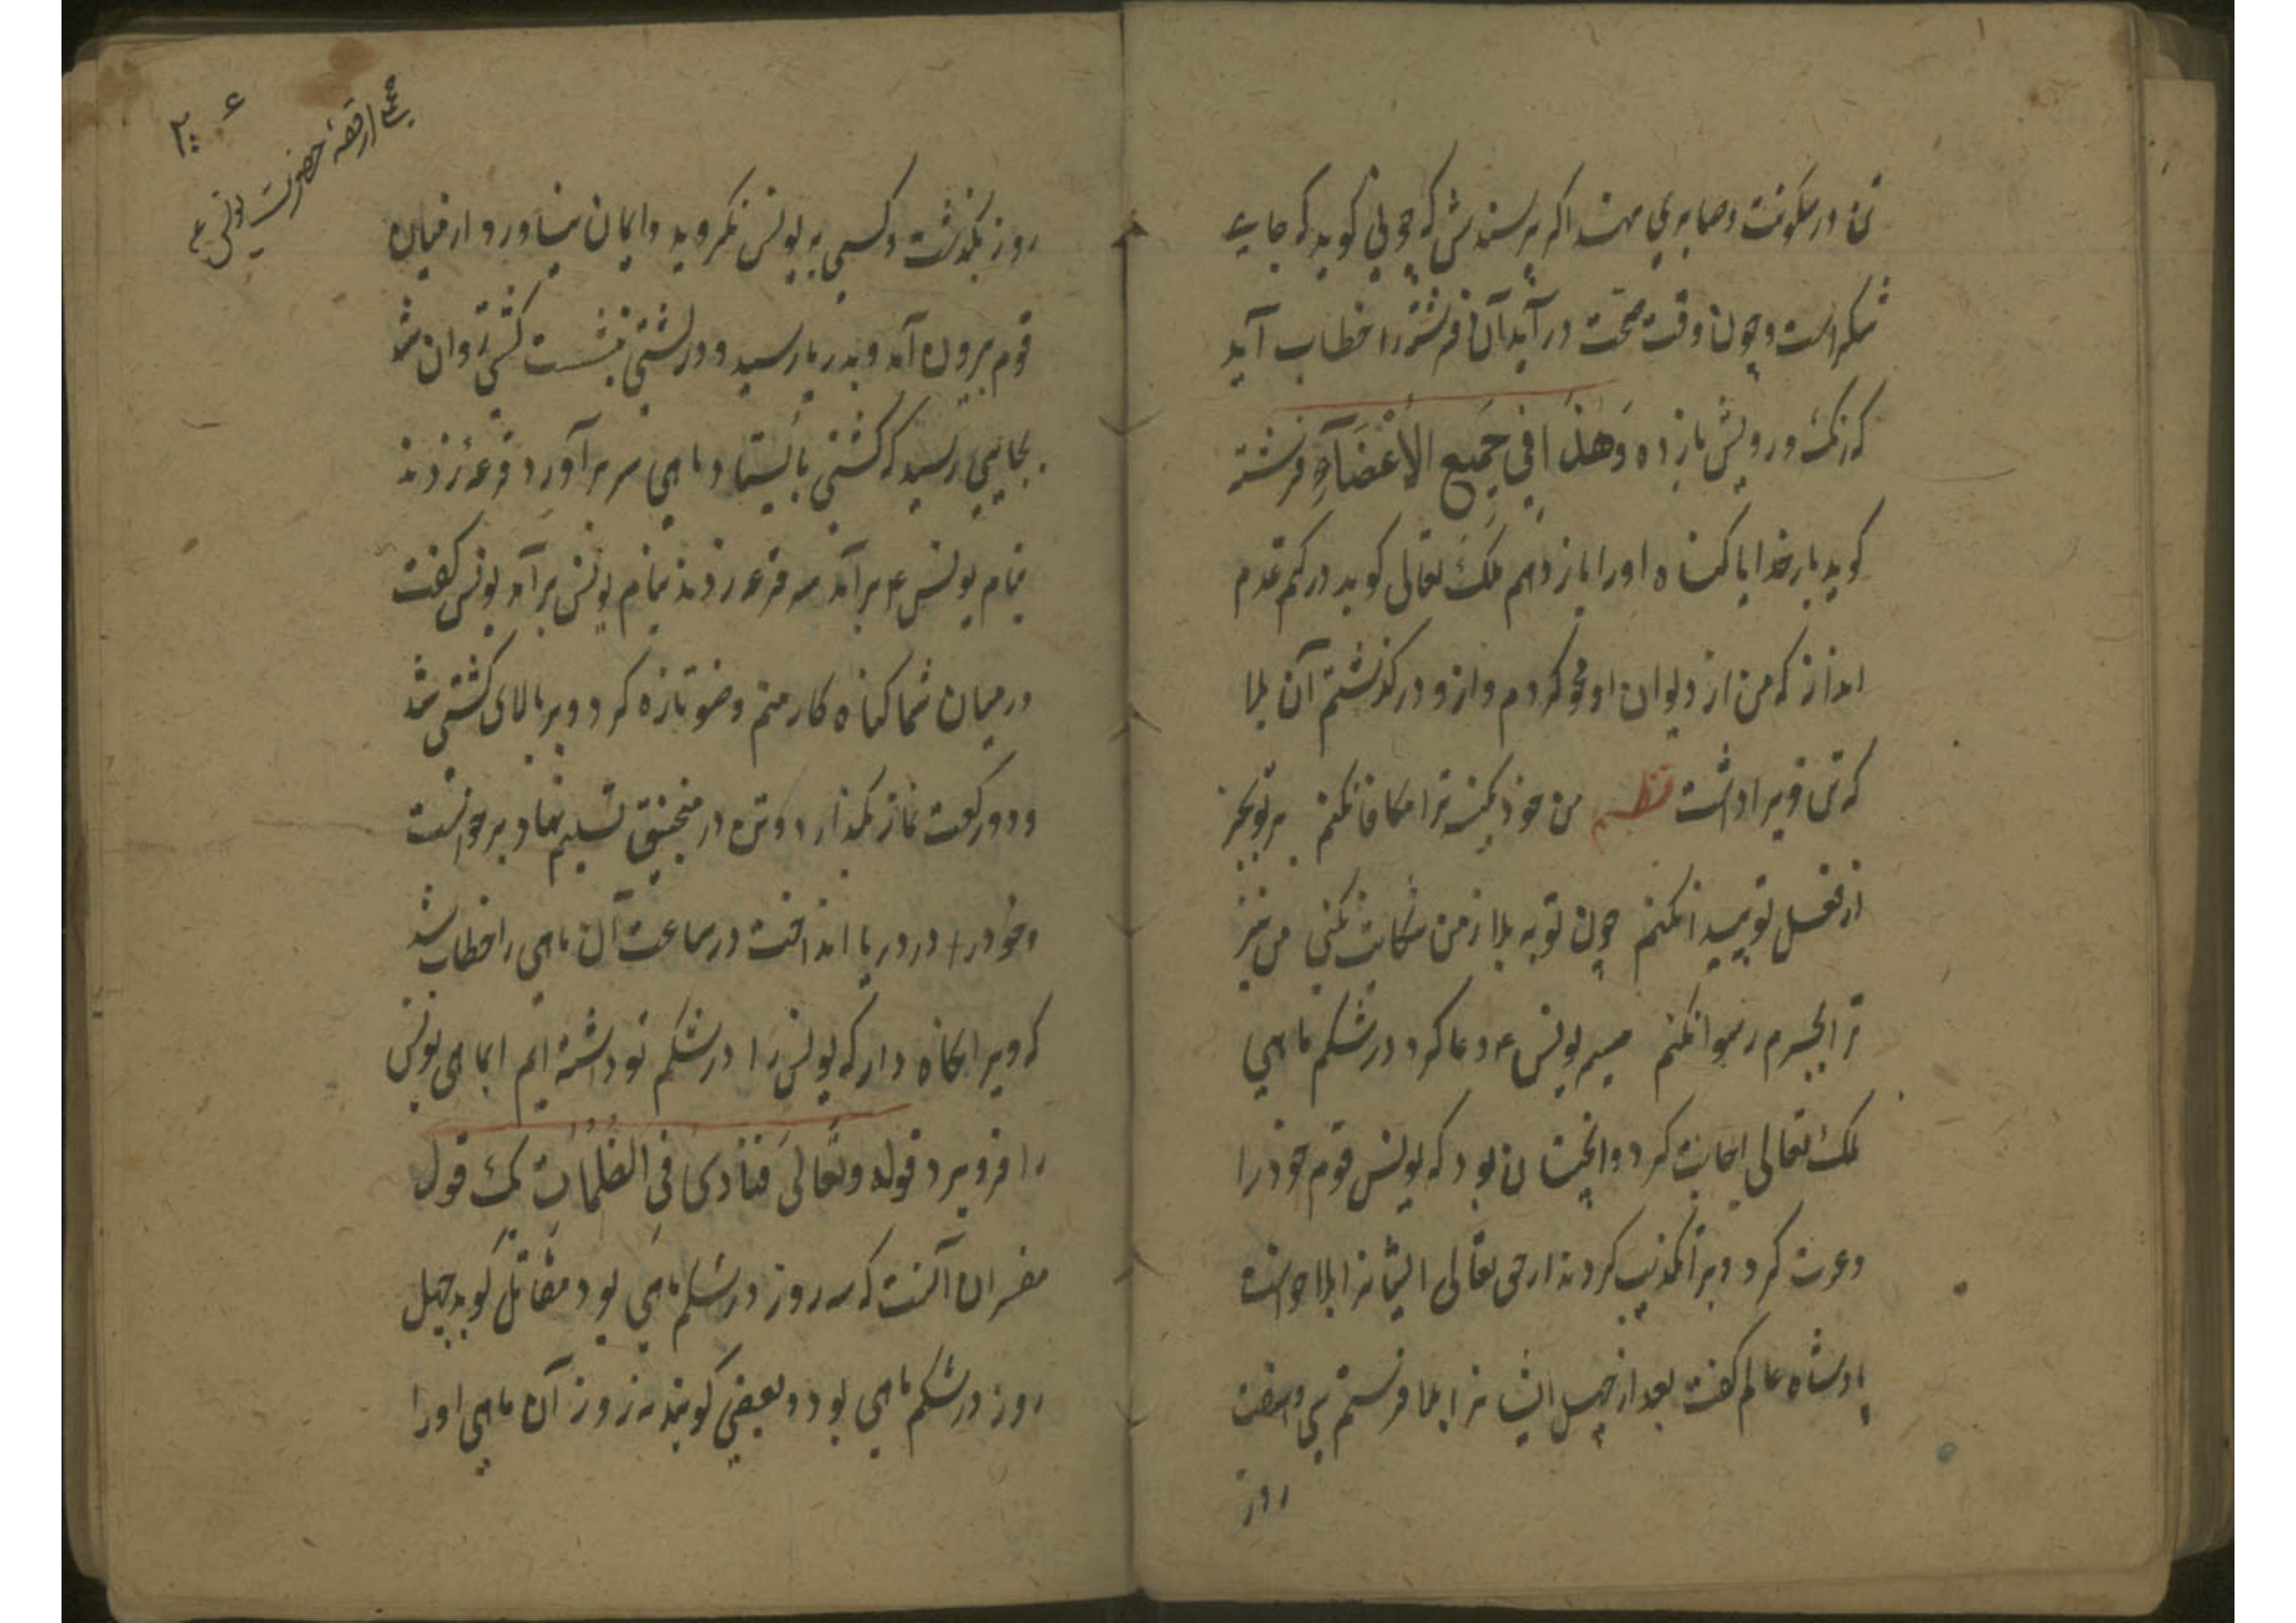 تن در سکونت و صابری نهند اگر پرسندش که چونی گوید که جای
شکر است و چون وقت صحت در آید آن فرشته را خطاب آید
که رنک رویش باز ده وَهٰذَا فِي جَمِيعِ الأَعْضَآءِ فرشته
گوید بار خدایا کناه او را باز دهم ملک تعالی گوید در کتم عدم
انداز که من از دیوان او محو کردم و ازو در گذشتم آن بلا
که تن ویرا داشت نظم من خود بکنه ترا مکافا نکنم بر تو بجز
از فضل تو پیدا نکنم چون تو به بلا از من شکایت نکنی من نیز
ترا بجرم رسوا نکنم میم یونس ع دعا کرد در شکم ماهی
ملک تعالی اجابت کرد و آنچنان بود که یونس قوم خود را
دعوت کرد ویرا تکذیب کردند از حق تعالی ایشانرا بلا خواست
پادشاه عالم گفت بعد از چهل ایشانرا بلا فرستم سی و هفت
روز
۲۰۶
از قصهٔ حضرت یونس ع
روز بگذشت و کسی به یونس نگروید و ایمان نیاورد از میان
قوم بیرون آمد و بدریا رسید و در کشتی بنشست کشتی روان شد
بجایی رسید که کشتی بایستاد و ماهی سر بر آورد قرعه زدند
بنام یونس ع برآمد سه قرعه زدند بنام یونس برآمد یونس گفت
در میان شما کناه کار منم وضو تازه کرد و بر بالای کشتی شد
و دو رکعت نماز بگذارد و تن در منجنیق تسلیم نهاد و برخواست
و خود را در دریا انداخت در ساعت آن ماهی را خطاب شد
که ویرا نکاه دار که یونس را در شکم تو داشته ایم ای ماهی یونس
را فرو برد قوله وتعالیٰ فَنَادَىٰ فِي الظُّلُمَاتِ یک قول
مفسران آنست که سه روز در شکم ماهی بود مقاتل گوید چهل
روز در شکم ماهی بود و بعضی گویند نه روز آن ماهی او را